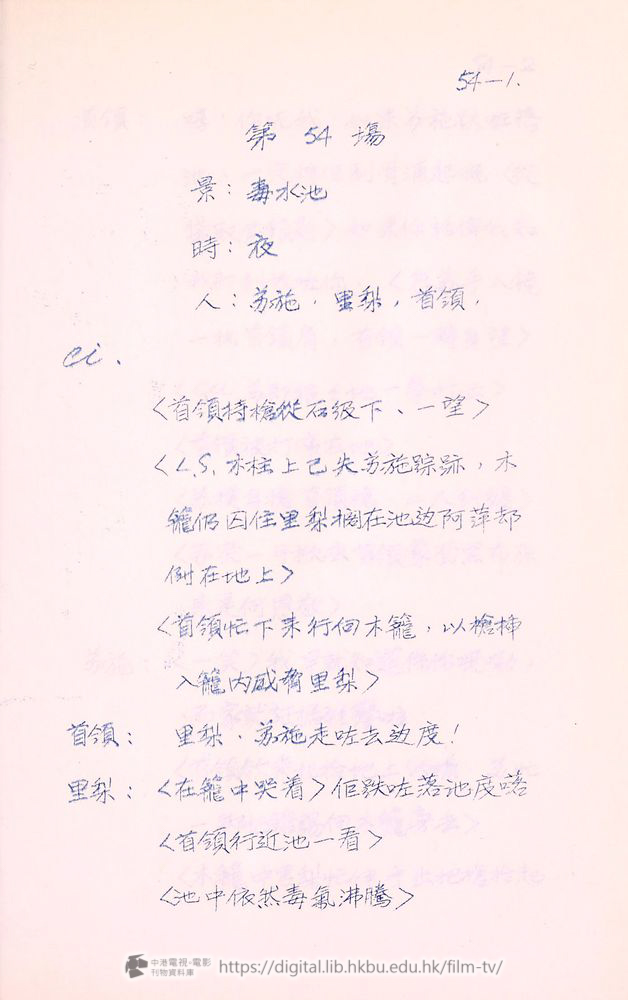 54—1.
第 54 場
景：毒水池
時：夜
人：苏施．里梨，首領．
Ci．
〈首領持槍從石級下、一望〉
〈L.S. 木柱上已失苏施踪跡，木
籠仍囚住里梨擱在池边阿萍却
倒在地上〉
〈首領忙下来行向木籠，以槍揷
入籠內威脅里梨〉
首領： 里梨．苏施走咗去边度！
里梨：〈在籠中哭着〉佢跌咗落池度咯
〈首領行近池一看〉
〈池中依然毒氣沸騰〉
中港電視·電影
刊物資料庫
https://digital.lib.hkbu.edu.hk/film-tv/